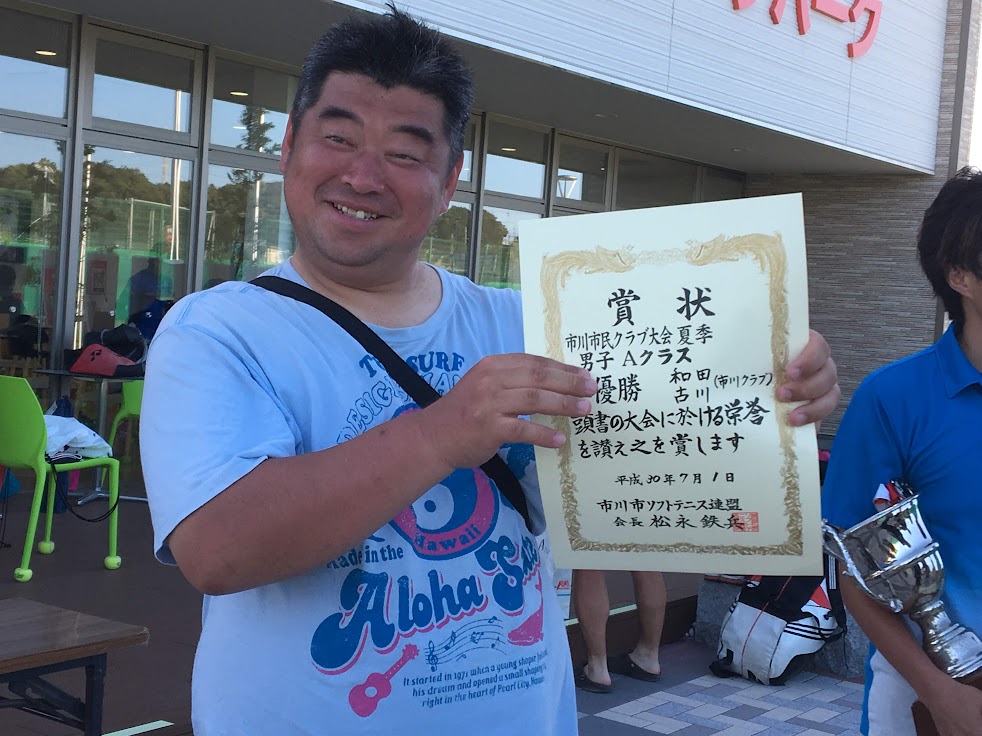 パーク
賞状
市川市民クラブ大会 夏季
男子 Aクラス
優勝 和田 (市川クラブ)
古川
頭書の大会に於ける栄誉
を讃え之を賞します
平成30年7月1日
市川市ソフトテニス連盟
会長 松永鉄兵
SURF
DESIGNS
Hawaii
Made in the
Aloha
It started in 1971 when a young shaper
his dream and opened a small shaping
right in the heart of Pearl City, Hawaii